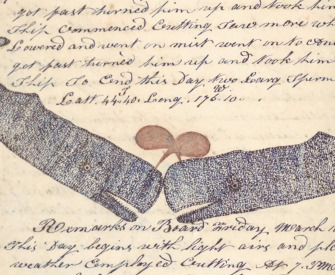 got fast turned him up and took him
Ship Commenced Cutting Saw more w
Lowered and went on mist went on to
got fast turned him up and took him
Ship So Ends this Day two Large Sperm
Latt. 44.40 Long. 176.10
Remarks on Board Friday March
This Day begins with light airs and pl
weather Employed Cutting At 7.